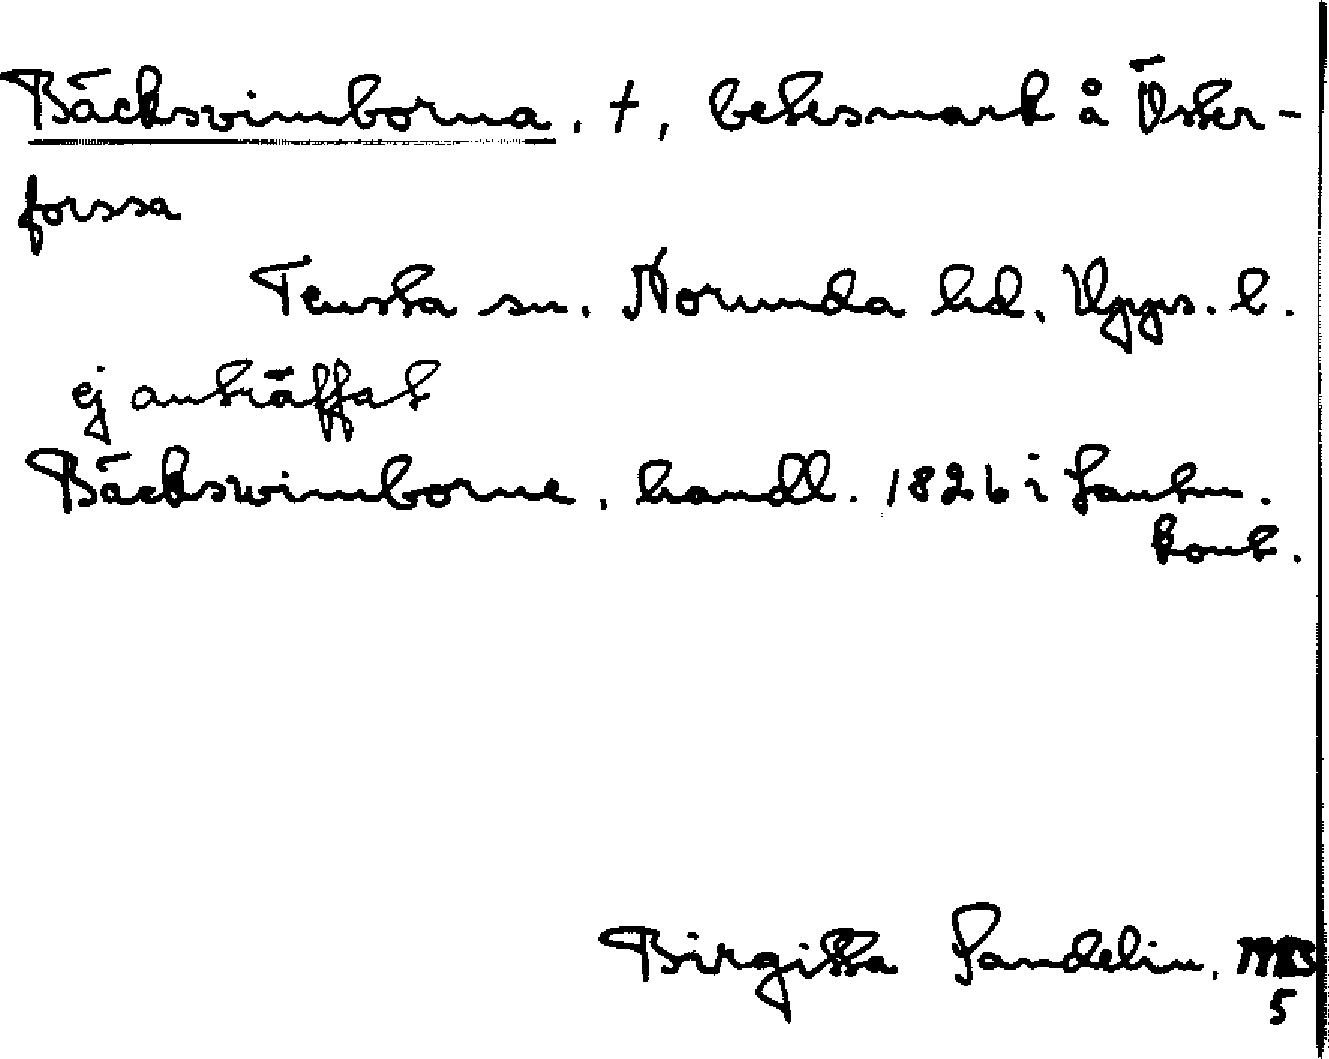 Bäcksvimborna, †, betesmark å Öster-
forssa
Tensta sn. Norunda hd. Upps. l.
ej anträffat
Bäckswimborne, handl. 1826 i Lantm.
kont.
Birgitta Sandelin.
5